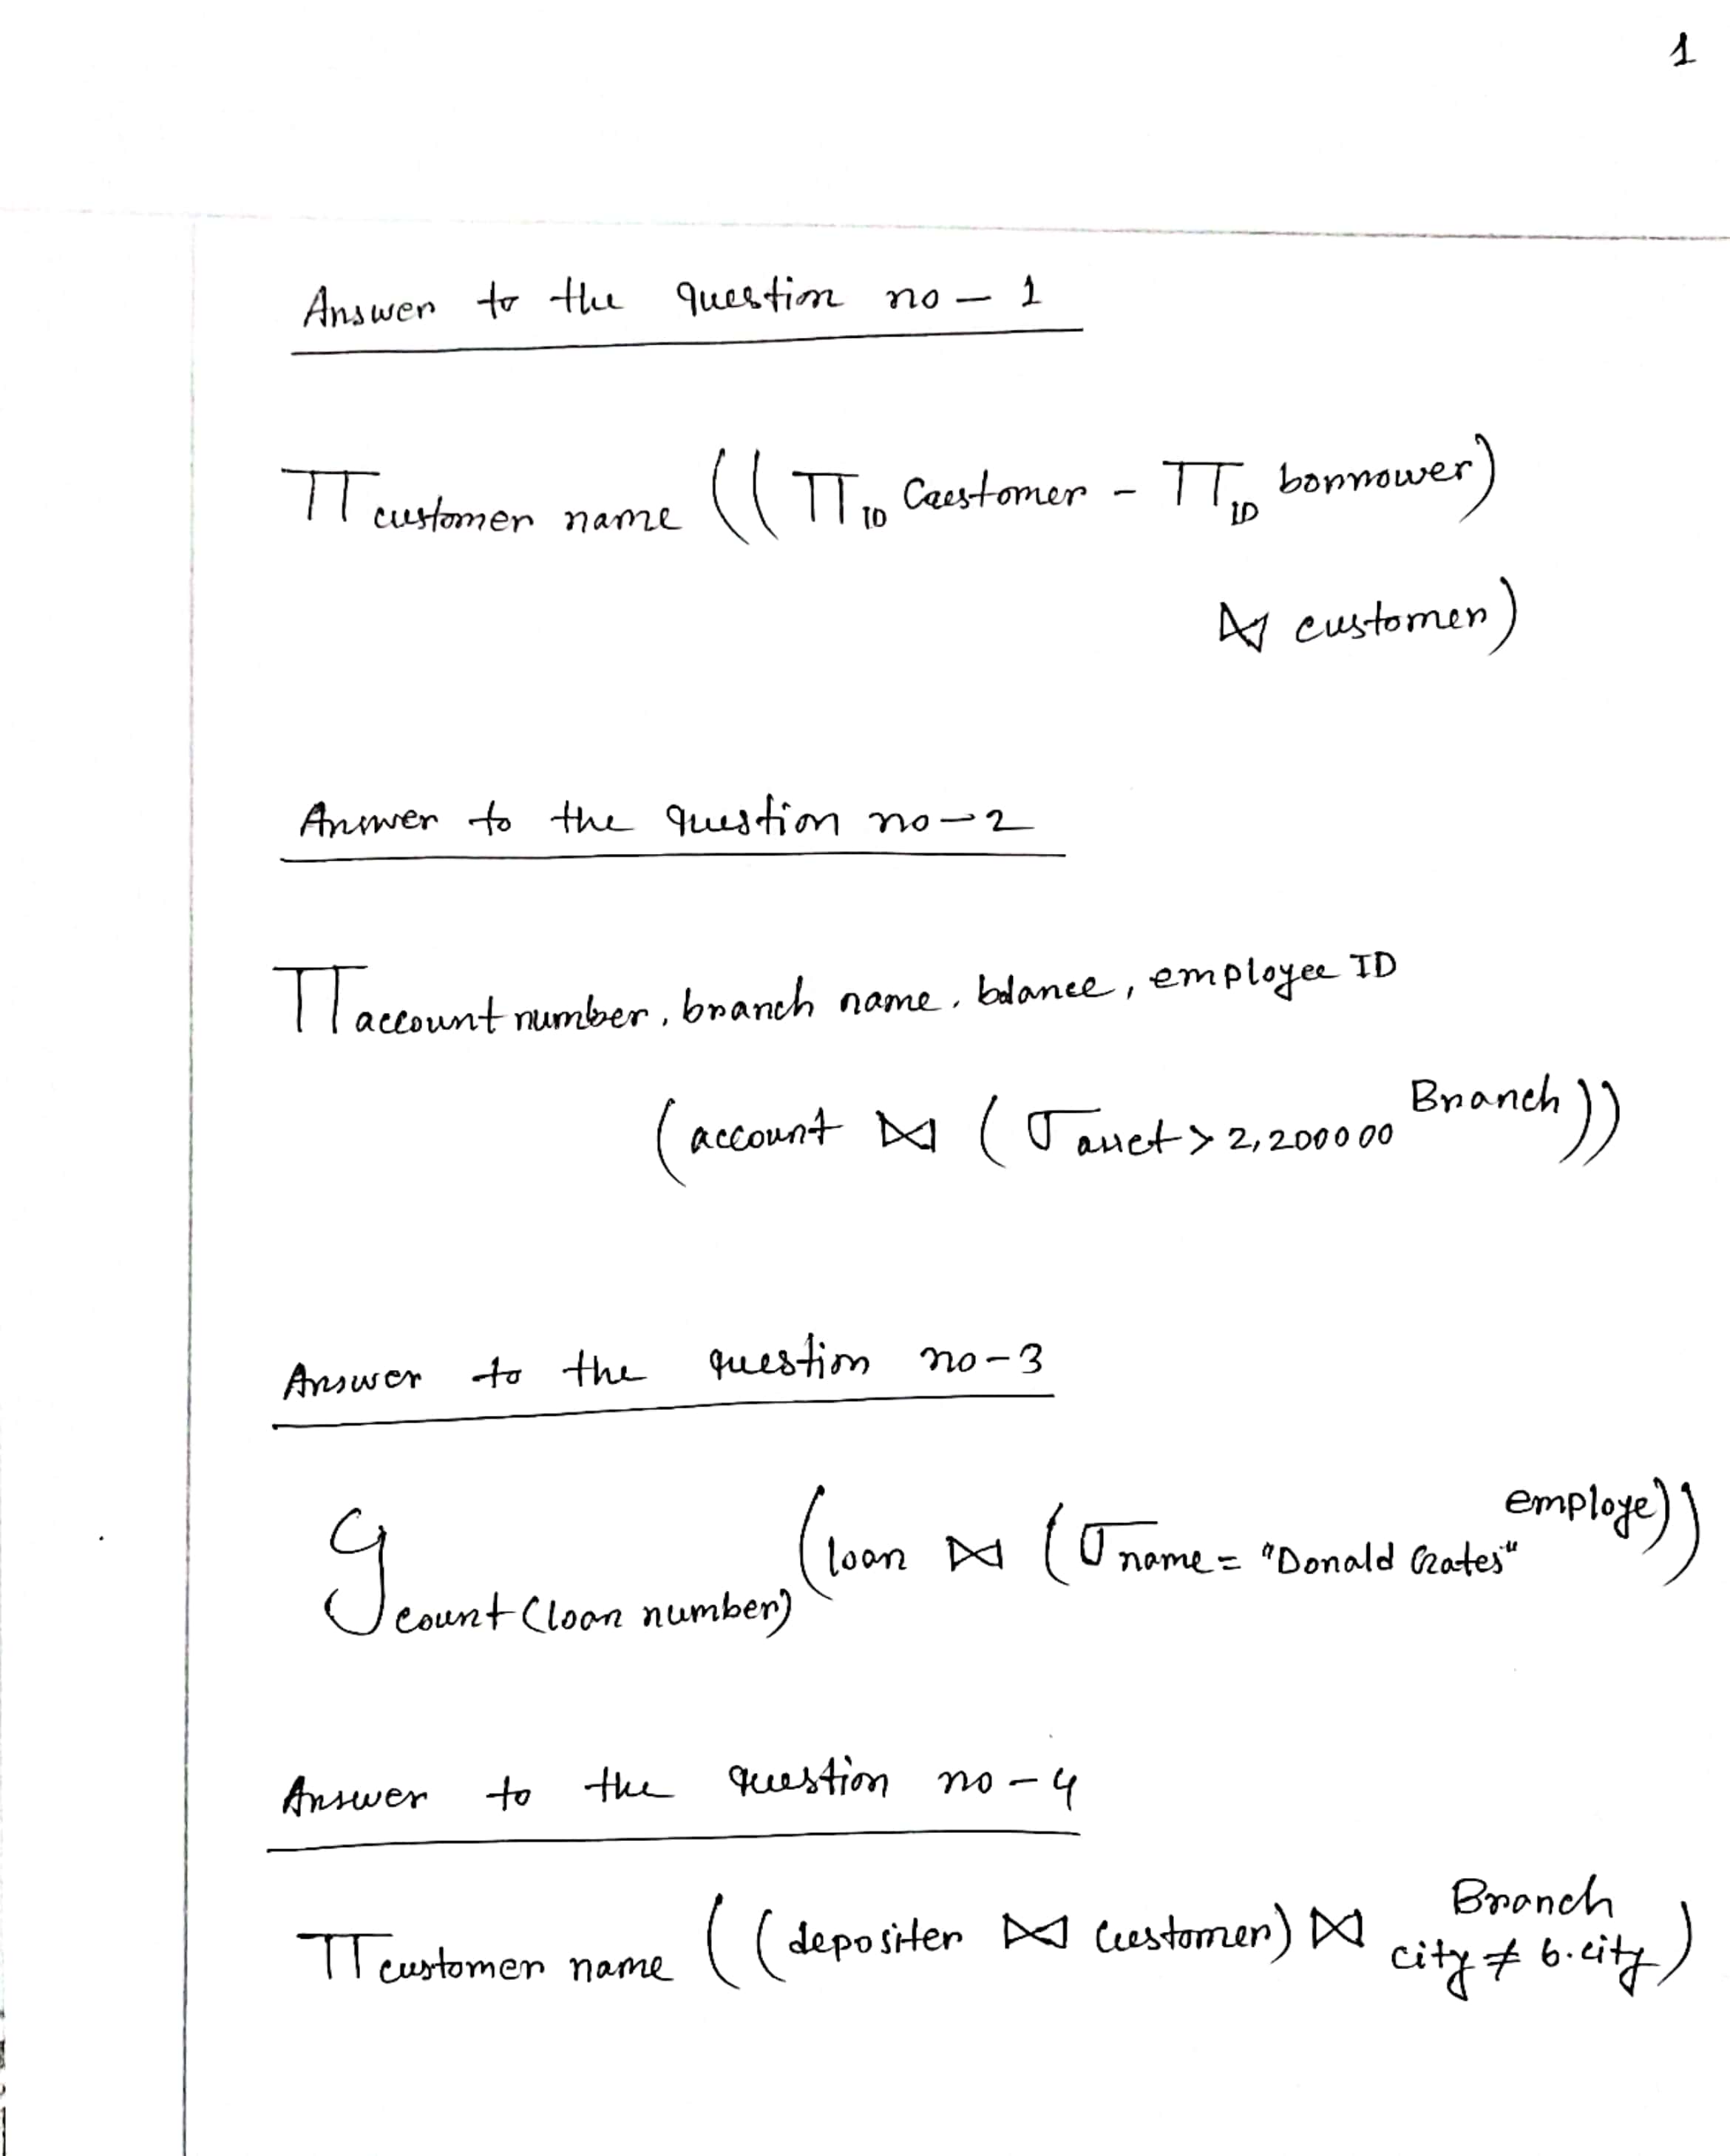 1
Answer to the question no - 1
Π customer name ((Π ID Customer - Π ID borrower)
⋈ customer)
Answer to the question no - 2
Π account number, branch name, balance, employee ID
(account ⋈ (σ asset > 2,200000 Branch))
Answer to the question no - 3
G count (loan number) (loan ⋈ (σ name = "Donald Gates" employe))
Answer to the question no - 4
Π customer name ((depositer ⋈ Customer) ⋈ Branch city ≠ b.city)